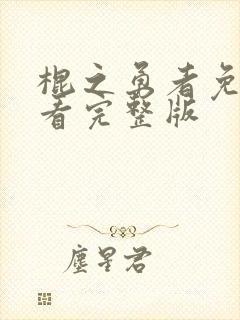 棍之勇者免
看完整版
尘星君